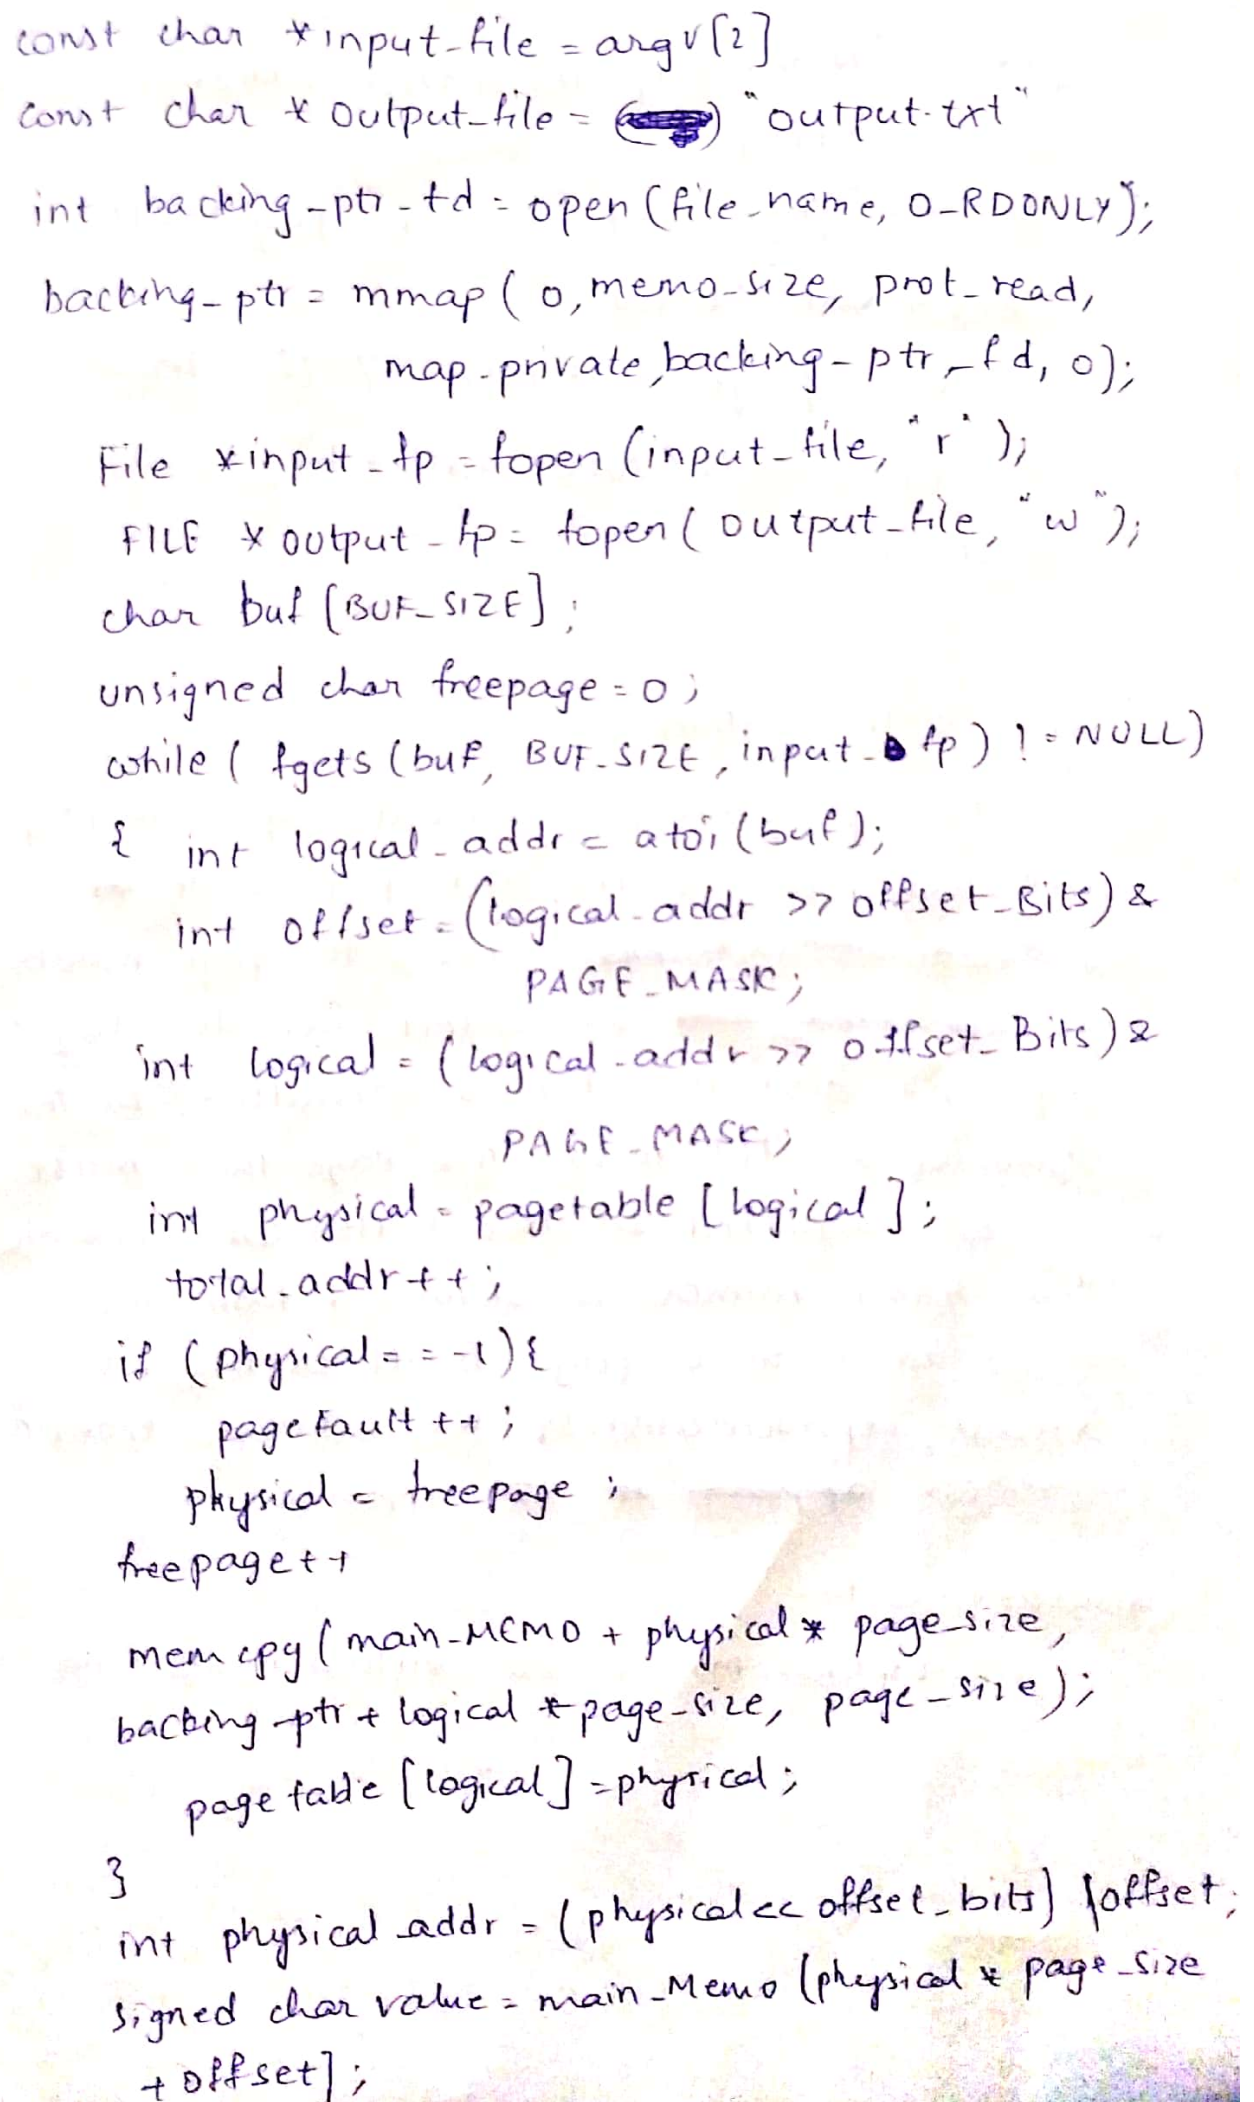 const char *input_file = argv[2]
const char * output_file = "output.txt"
int backing_ptr_fd = open(file_name, O_RDONLY);
backing_ptr = mmap(0, memo_size, prot_read,
map_private, backing_ptr_fd, 0);
File *input_fp = fopen(input_file, "r");
FILE * output_fp = fopen(output_file, "w");
char buf[BUF_SIZE];
unsigned char freepage = 0;
while ( fgets(buf, BUF_SIZE, input_fp) != NULL)
{ int logical_addr = atoi(buf);
int offset = (logical_addr >> offset_Bits) &
PAGE_MASK;
int logical = (logical_addr >> offset_Bits) &
PAGE_MASK;
int physical = pagetable [logical];
total_addr++;
if (physical == -1){
pagefault ++;
physical = freepage;
freepage++
memcpy(main_MEMO + physical * page_size,
backing_ptr + logical * page_size, page_size);
page table [logical] = physical;
}
int physical_addr = (physical << offset_bits) | offset;
signed char value = main_Memo (physical * page_size
+ offset];